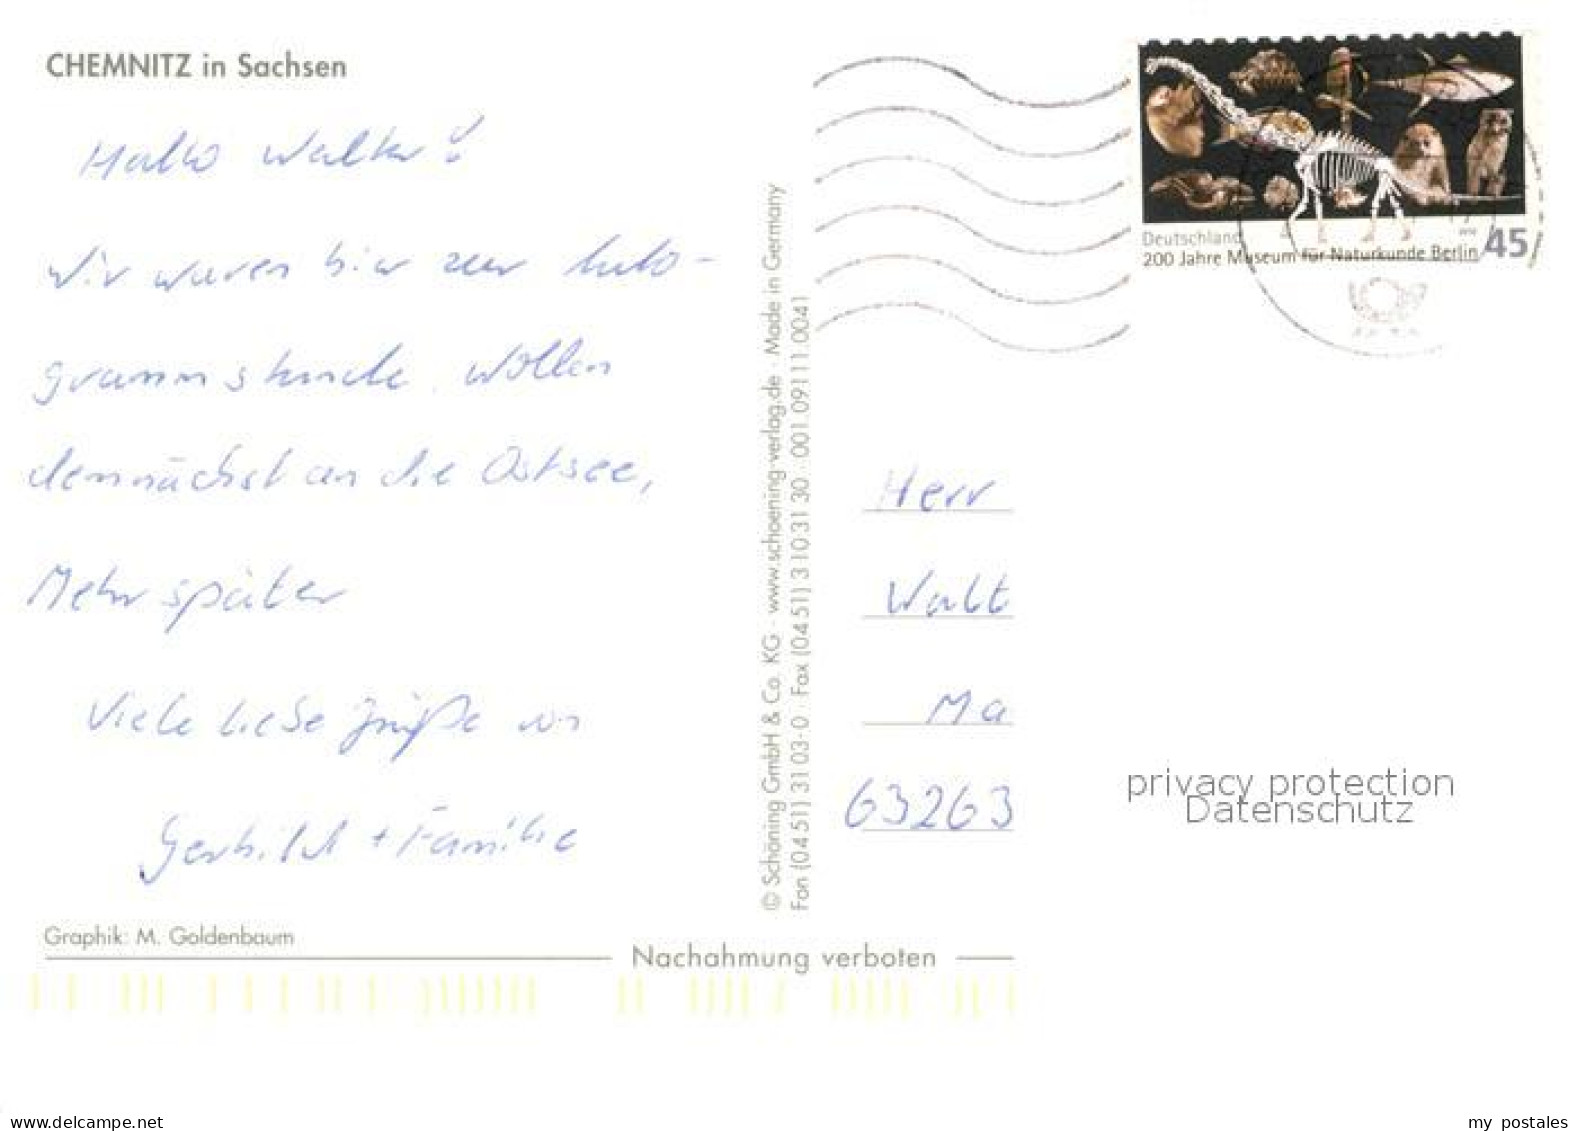 CHEMNITZ in Sachsen
Hallo Walter!
Wir waren hier zur Auto-
grammstunde. Wollen
demnächst an die Ostsee,
Mehr später
Viele liebe Grüße von
Gerhild + Familie
Graphik: M. Goldenbaum
Nachahmung verboten
© Schöning GmbH & Co. KG · www.schoening-verlag.de · Made in Germany
Fon (04 51) 31 03-0 · Fax (04 51) 3 10 31 30 · 001.09111.0041
Deutschland
200 Jahre Museum für Naturkunde Berlin 45
Herr
Walt
Ma
63263
privacy protection
Datenschutz
www.delcampe.net
my postales